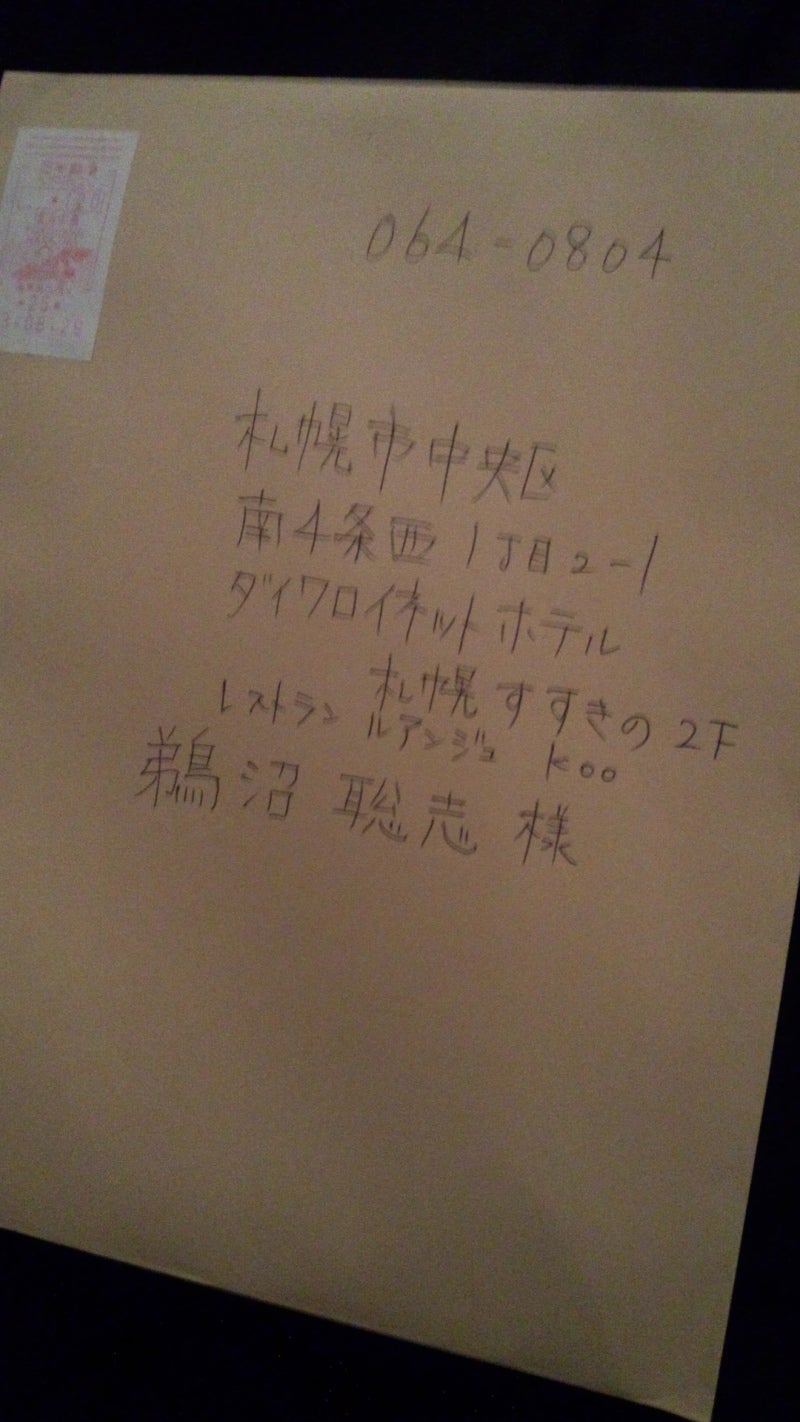 064-0804
札幌市中央区
南4条西1丁目2-1
ダイワロイネットホテル
札幌すすきの2F
レストラン ルアンジュ Koo
鵜沼 聡志 様